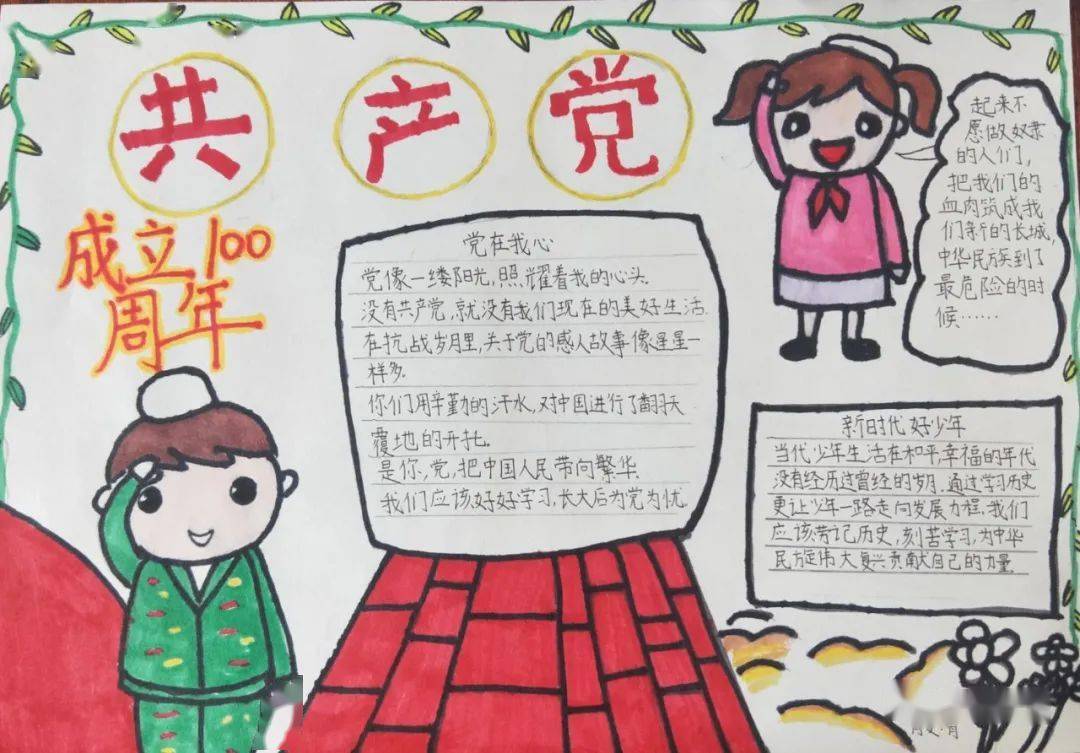 共产党
成立100
周年
党在我心
党像一缕阳光,照耀着我的心头.
没有共产党,就没有我们现在的美好生活.
在抗战岁月里,关于党的感人故事像星星一
样多.
你们用辛勤的汗水,对中国进行了翻天
覆地的开拓.
是你,党,把中国人民带向繁华.
我们应该好好学习,长大后为党为忧.
起来不
愿做奴隶
的人们,
把我们的
血肉筑成我
们新的长城,
中华民族到了
最危险的时
候……
新时代好少年
当代少年生活在和平,幸福的年代
没有经历过曾经的岁月.通过学习历史
更让少年一路走向发展力程.我们
应该劳记历史,刻苦学习,为中华
民族伟大复兴贡献自己的力量.